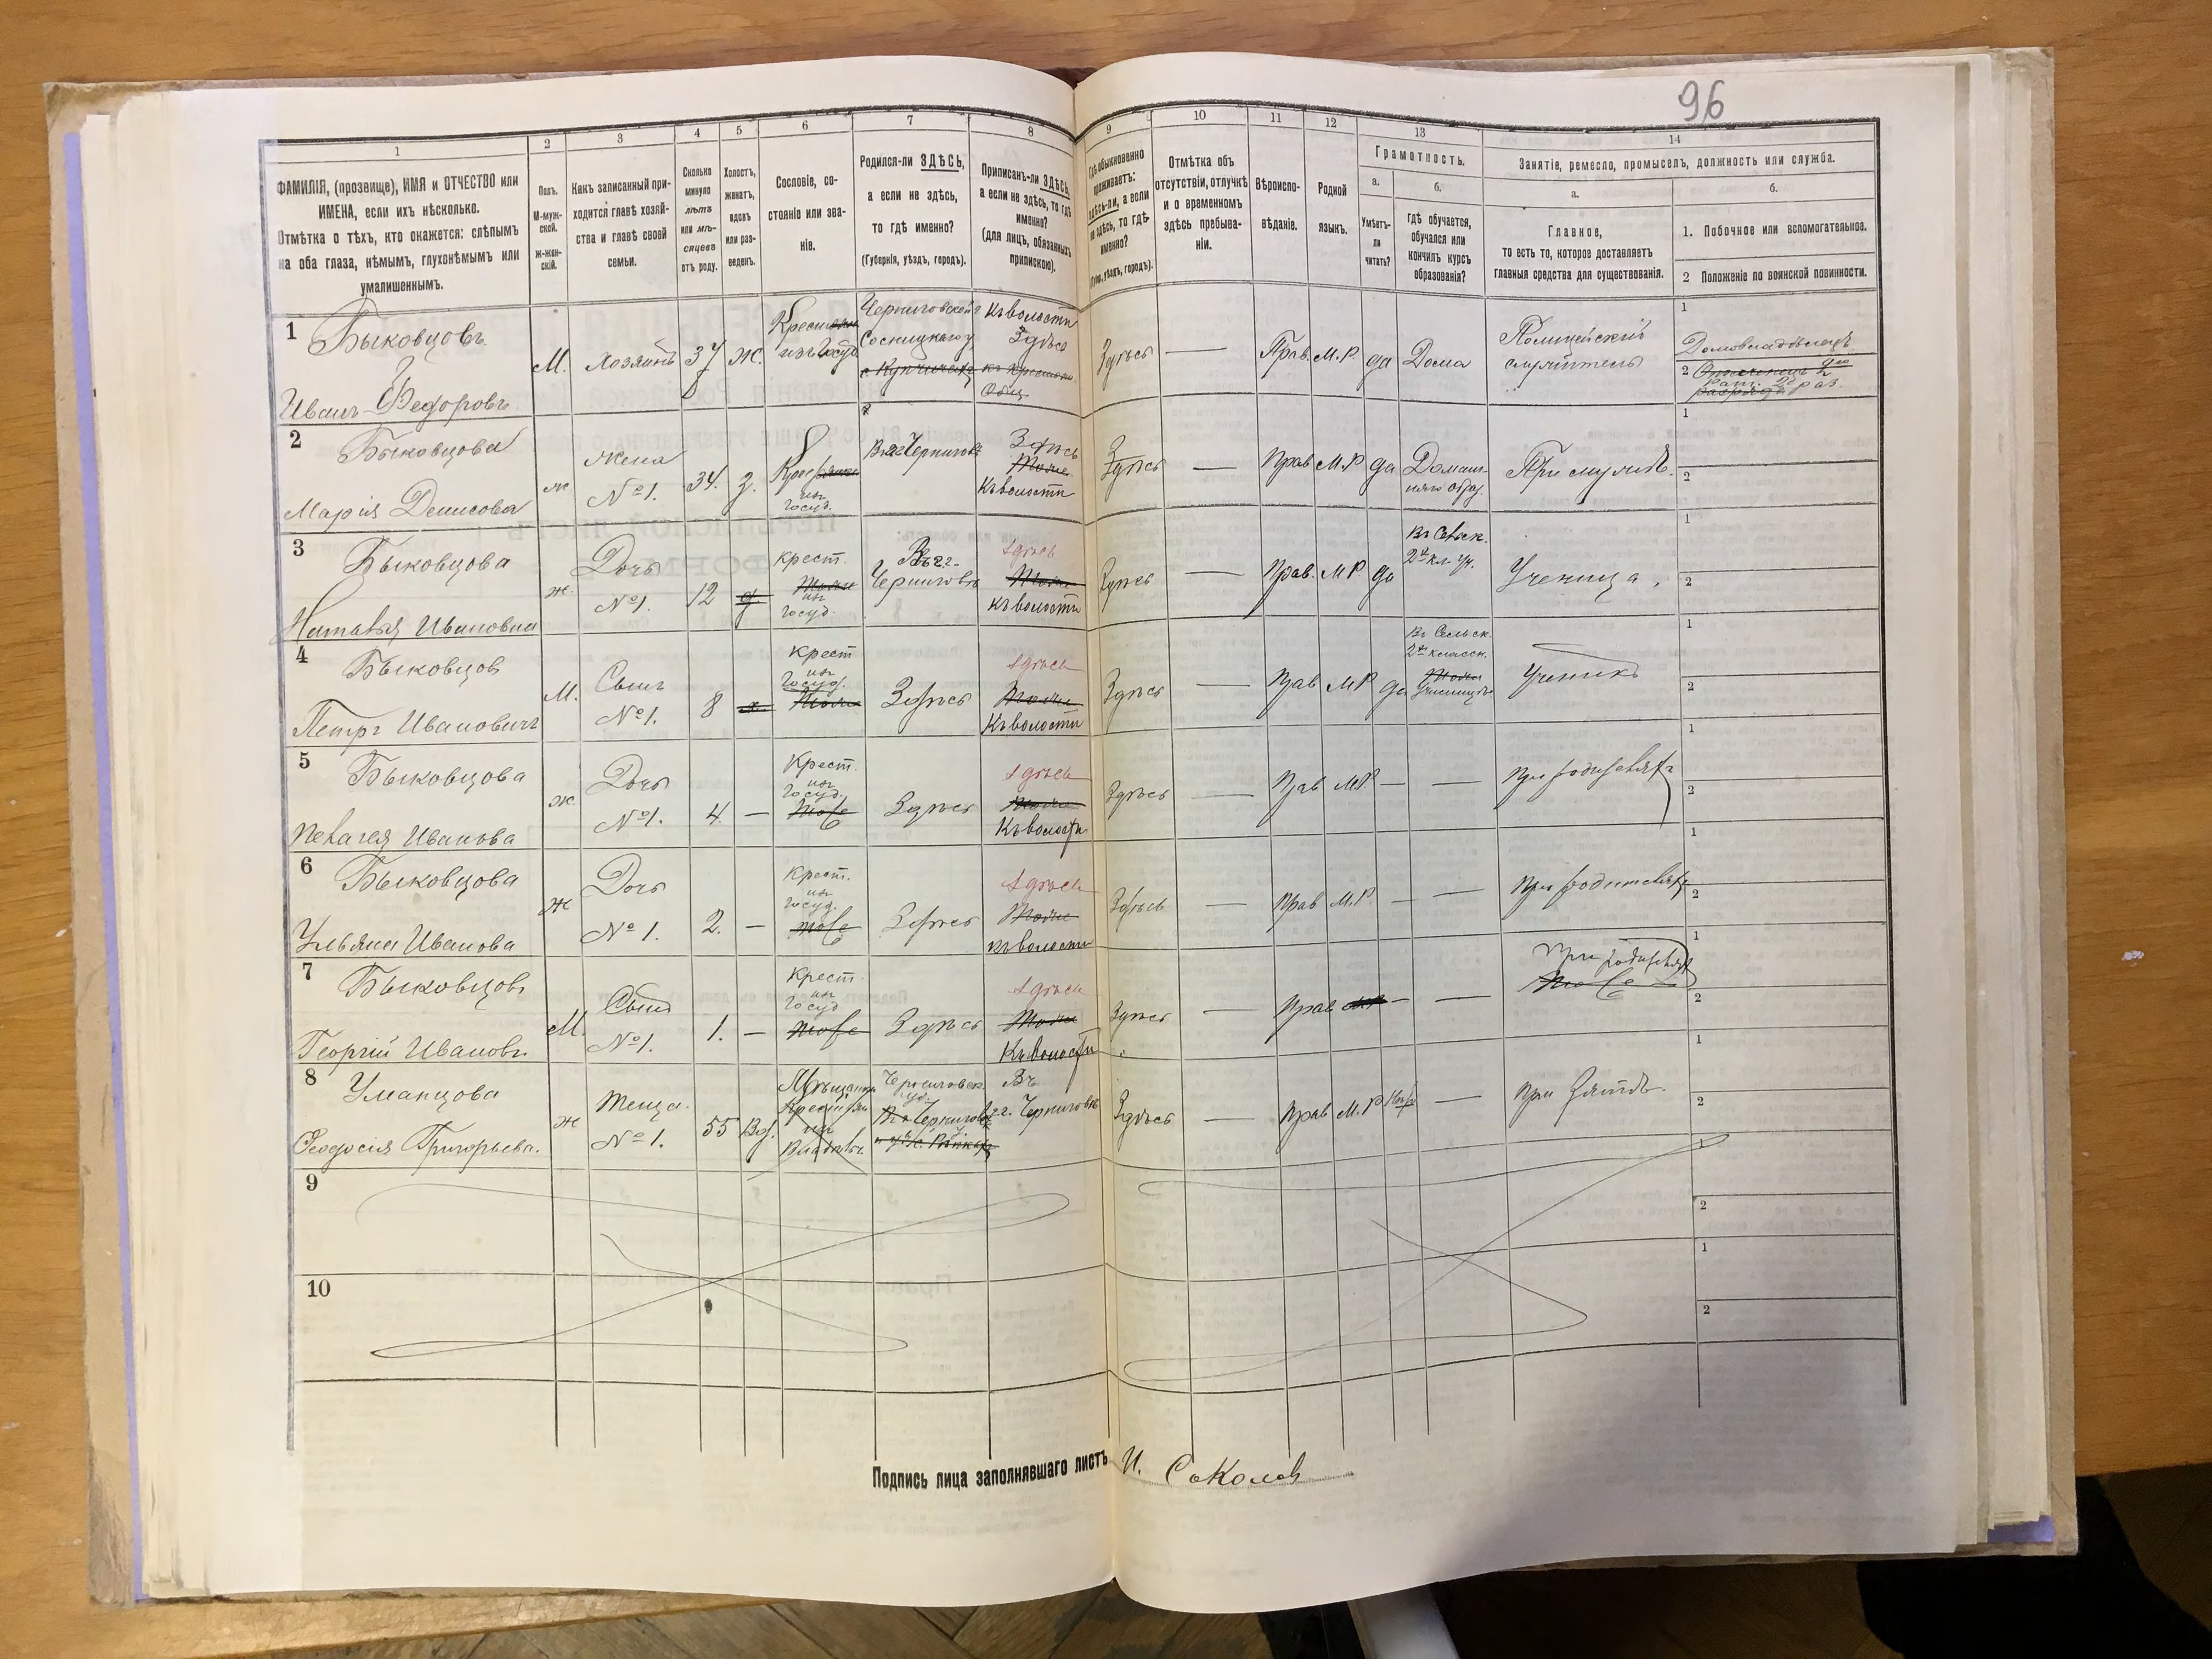 96
1
2
3
4
5
6
7
8
9
10
11
12
13
14
ФАМИЛІЯ, (прозвище), ИМЯ и ОТЧЕСТВО или
ИМЕНА, если ихъ нѣсколько.
Отмѣтка о тѣхъ, кто окажется: слѣпымъ
на оба глаза, нѣмымъ, глухонѣмымъ или
умалишеннымъ.
Полъ.
М-муж-
ской.
Ж-жен-
скій.
Какъ записанный при-
ходится главѣ хозяй-
ства и главѣ своей
семьи.
Сколько
минуло
лѣтъ
или мѣ-
сяцевъ
отъ роду.
Холостъ,
женатъ,
вдовъ
или раз-
веденъ.
Сословіе, со-
стояніе или зва-
ніе.
Родился-ли ЗДѢСЬ,
а если не здѣсь,
то гдѣ именно?
(Губернія, уѣздъ, городъ).
Приписанъ-ли ЗДѢСЬ,
а если не здѣсь, то гдѣ
именно?
(для лицъ, обязанныхъ
припискою).
Гдѣ обыкновенно
проживаетъ:
здѣсь-ли, а если
не здѣсь, то гдѣ
именно?
(Губ., уѣздъ, городъ).
Отмѣтка объ
отсутствіи, отлучкѣ
и о временномъ
здѣсь пребыва-
ніи.
Вѣроиспо-
вѣданіе.
Родной
языкъ.
Грамотность.
а.
Умѣетъ-
ли
читать?
б.
гдѣ обучается,
обучался или
кончилъ курсъ
образованія?
Занятіе, ремесло, промыселъ, должность или служба.
а.
Главное,
то есть то, которое доставляетъ
главныя средства для существованія.
б.
1. Побочное или вспомогательное.
2 Положеніе по воинской повинности.
1
Быковцовъ
Иванъ Федоровъ
М.
Хозяинъ
37
Ж.
Черниговской
Сосницкаго у
Къ волости
Здѣсь
Здѣсь
—
Прав.
М.Р.
да
Дома
Полицейскій
служитель
1
Домовладѣлецъ
2
2
Быковцова
Марія Денисова
ж
Жена
№ 1.
34.
з.
изъ
Госуд.
Въ г. Черниговѣ
Здѣсь
Къ волости
Здѣсь
—
Прав
М.Р
да
Домаш-
няго обр.
При мужѣ.
1
2
3
Быковцова
Наталья Ивановна
ж.
Дочь
№ 1.
12
крест.
изъ
Госуд.
Въ г.
Черниговѣ
Здѣсь
къ волости
Здѣсь
—
Прав.
М.Р.
да
Въ Сельск.
2х кл. уч.
Ученица,
1
2
4
Быковцов
Петръ Ивановичъ
М.
Сынъ
№ 1.
8
Крест
изъ
Госуд.
Здѣсь
Здѣсь
Къ волости
Здѣсь
—
Прав
М.Р
да
Въ Сельск.
2х классн.
училищѣ
Ученикъ
1
2
5
Быковцова
Пелагея Иванова
Ж.
Дочь
№ 1.
4.
—
Крест.
изъ
Госуд.
Здѣсь
Здѣсь
Къ волости
Здѣсь
—
Прав
М.Р.
—
—
При родителяхъ
1
2
6
Быковцова
Ульяна Иванова
Ж
Дочь
№ 1.
2.
—
Крест.
изъ
Госуд.
Здѣсь
Здѣсь
къ волости
Здѣсь
—
Прав
М.Р.
—
—
При родителяхъ
1
2
7
Быковцовъ
Георгій Ивановъ.
М.
Сынъ
№ 1.
1.
—
Крест.
изъ
Госуд
Здѣсь
Здѣсь
Къ волости
Здѣсь
—
Прав
—
—
При родителяхъ
1
2
8
Уманцова
Феодосія Григорьева.
Ж
Теща.
№ 1.
55
Вд.
Мѣщанка
Черниговск.
Въ
г. Черниговѣ
Здѣсь
—
Прав
М.Р.
—
При Зятѣ.
1
2
9
1
2
10
1
2
Подпись лица заполнявшаго листъ И. Соколов